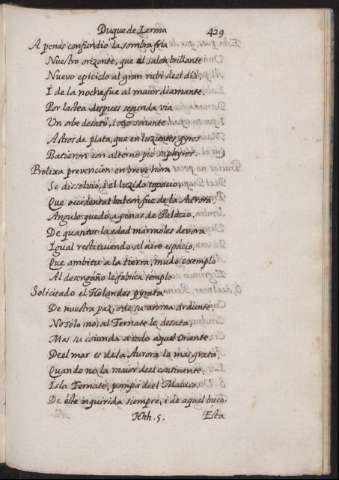 Duque de Lerma
429
A penas confundio la sombra fria
Nuestro orizonte, que el salon brillante
Nuevo epiciclo al gran rubi del dia,
I de la noche fue al maior diamante.
Por lactea despues segunda via
Un orbe desató, i otro sonante
Astros de plata, que en luzientes gyros
Batieron con alterno pie saphyros.
Prolixa prevencion en breve hora
Se dissolvió, i el luzido topacio,
Que occidental balcon fue de la Aurora
Angulo quedó apenas de Palacio,
De quantos la edad marmoles devora
Igual restituiendo al aire espacio,
Que ambito a la tierra, mudo exemplo
Al desengaño le fabrica templo
Solicitado el Holandes pyrata
De nuestra paz, o de su aroma ardiente,
No solo no al Ternate le desata
Mas su coiunda a todo aquel Oriente
Del mar es de la Aurora la mas grata,
Quando no la maior del continente
Isla Ternate, pompa del Maluco
De este inquirida siempre, i de aquel buco.
Hhh. 5.
Esta